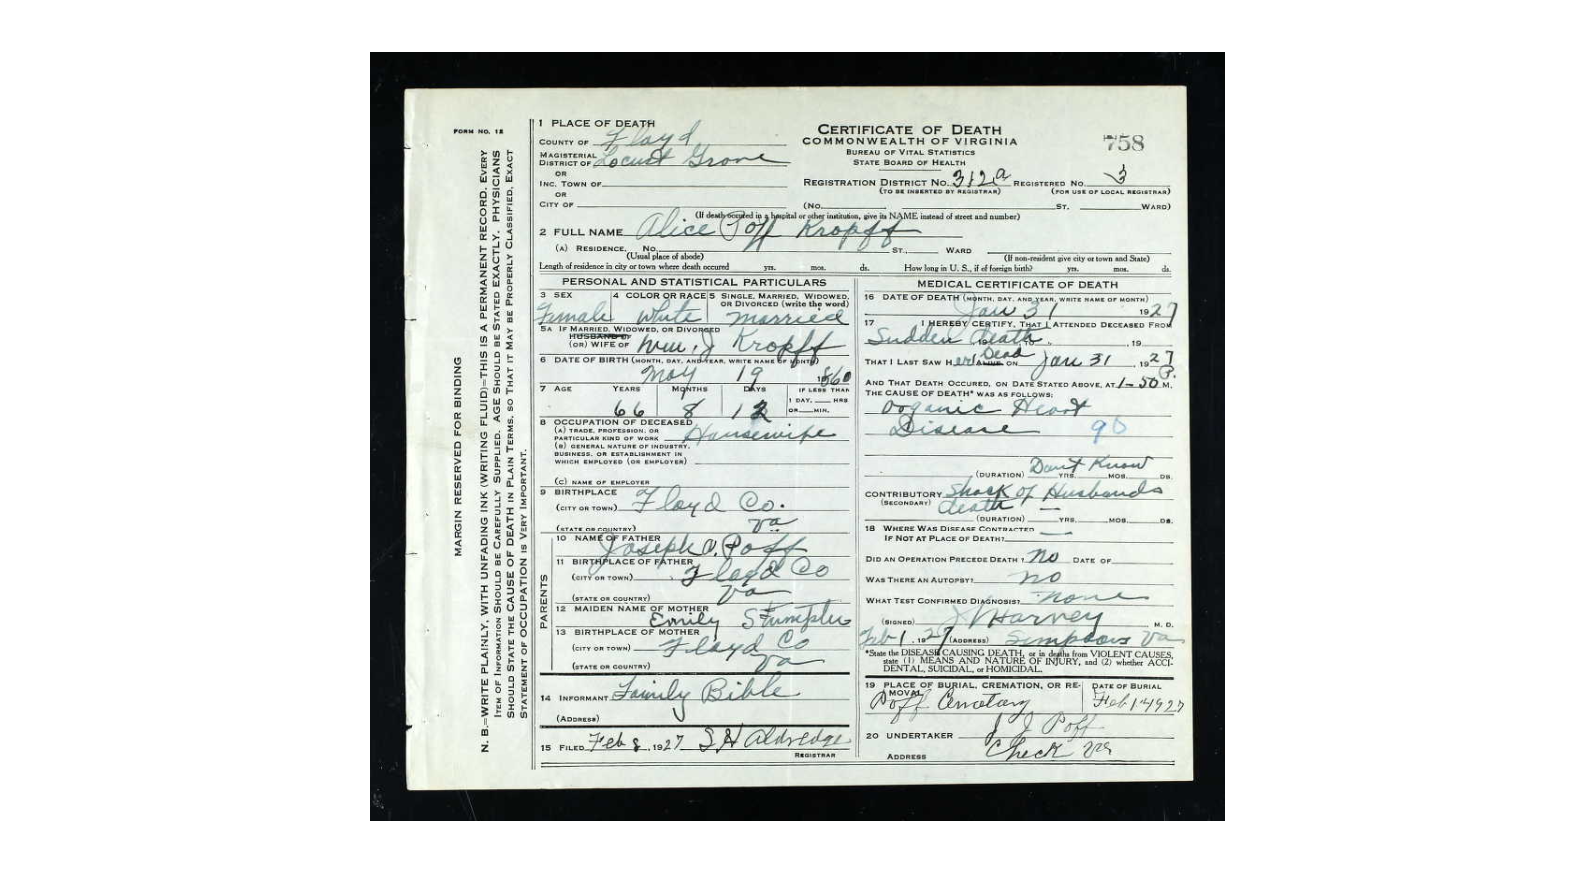 FORM NO. 12
MARGIN RESERVED FOR BINDING
N. B.—WRITE PLAINLY, WITH UNFADING INK (WRITING FLUID)—THIS IS A PERMANENT RECORD. EVERY
ITEM OF INFORMATION SHOULD BE CAREFULLY SUPPLIED. AGE SHOULD BE STATED EXACTLY. PHYSICIANS
SHOULD STATE THE CAUSE OF DEATH IN PLAIN TERMS, SO THAT IT MAY BE PROPERLY CLASSIFIED, EXACT
STATEMENT OF OCCUPATION IS VERY IMPORTANT.
1 PLACE OF DEATH
COUNTY OF Floyd
MAGISTERIAL DISTRICT OF Locust Grove
OR
INC. TOWN OF
OR
CITY OF
CERTIFICATE OF DEATH
COMMONWEALTH OF VIRGINIA
BUREAU OF VITAL STATISTICS
STATE BOARD OF HEALTH
758
REGISTRATION DISTRICT NO. 312a REGISTERED NO. 3
(TO BE INSERTED BY REGISTRAR) (FOR USE OF LOCAL REGISTRAR)
(NO. ST. WARD)
(If death occured in a hospital or other institution, give its NAME instead of street and number)
2 FULL NAME Alice Poff Kropff
(A) RESIDENCE. No. ST., WARD
(Usual place of abode) (If non-resident give city or town and State)
Length of residence in city or town where death occured yrs. mos. ds. How long in U. S., if of foreign birth? yrs. mos. ds.
PERSONAL AND STATISTICAL PARTICULARS
3 SEX 4 COLOR OR RACE 5 SINGLE, MARRIED, WIDOWED, OR DIVORCED (write the word)
Female White Married
5A IF MARRIED, WIDOWED, OR DIVORCED
HUSBAND OF
(OR) WIFE OF Wm. J Kropff
6 DATE OF BIRTH (MONTH, DAY, AND YEAR, WRITE NAME OF MONTH)
May 19 1860
7 AGE YEARS MONTHS DAYS IF LESS THAN
1 DAY, HRS
OR MIN.
66 8 12
8 OCCUPATION OF DECEASED
(A) TRADE, PROFESSION, OR
PARTICULAR KIND OF WORK Housewife
(B) GENERAL NATURE OF INDUSTRY,
BUSINESS, OR ESTABLISHMENT IN
WHICH EMPLOYED (OR EMPLOYER)
(C) NAME OF EMPLOYER
9 BIRTHPLACE
(CITY OR TOWN) Floyd Co.
(STATE OR COUNTRY) Va
PARENTS
10 NAME OF FATHER
Joseph A. Poff
11 BIRTHPLACE OF FATHER
(CITY OR TOWN) Floyd Co
(STATE OR COUNTRY) Va
12 MAIDEN NAME OF MOTHER
Emily
13 BIRTHPLACE OF MOTHER
(CITY OR TOWN) Floyd Co
(STATE OR COUNTRY) Va
14 INFORMANT Family Bible
(ADDRESS)
15 FILED Feb 8, 1927 S H Aldredge
REGISTRAR
MEDICAL CERTIFICATE OF DEATH
16 DATE OF DEATH (MONTH, DAY, AND YEAR, WRITE NAME OF MONTH)
Jan 31 1927
17 I HEREBY CERTIFY, THAT I ATTENDED DECEASED FROM
Sudden death 19 TO , 19
THAT I LAST SAW HER Dead ALIVE ON Jan 31, 1927
AND THAT DEATH OCCURED, ON DATE STATED ABOVE, AT 1-50 P. M.
THE CAUSE OF DEATH* WAS AS FOLLOWS:
Organic Heart
Disease 90
(DURATION) Dont Know YRS. MOS. DS.
CONTRIBUTORY Shock of Husbands
(SECONDARY) death —
(DURATION) YRS. MOS. DS.
18 WHERE WAS DISEASE CONTRACTED
IF NOT AT PLACE OF DEATH? —
DID AN OPERATION PRECEDE DEATH? no DATE OF
WAS THERE AN AUTOPSY? no
WHAT TEST CONFIRMED DIAGNOSIS? none
(SIGNED) J Harvey M. D.
Feb 1, 1927 (ADDRESS) Simpsons Va
*State the DISEASE CAUSING DEATH, or in deaths from VIOLENT CAUSES,
state (1) MEANS AND NATURE OF INJURY, and (2) whether ACCI-
DENTAL, SUICIDAL, or HOMICIDAL.
19 PLACE OF BURIAL, CREMATION, OR RE-
MOVAL DATE OF BURIAL
Poff Cemetary Feb 1st 1927
20 UNDERTAKER J J Poff
ADDRESS Check Va